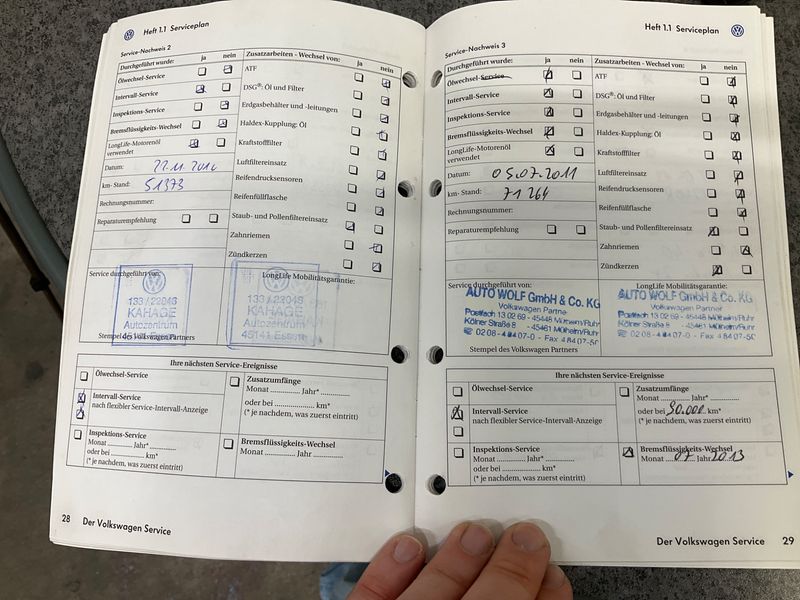 Heft 1.1 Serviceplan
Service-Nachweis 2
Durchgeführt wurde: ja nein
Ölwechsel-Service
Intervall-Service
Inspektions-Service
Bremsflüssigkeits-Wechsel
LongLife-Motorenöl
verwendet
Datum: 22.11.2010
km- Stand: 51373
Rechnungsnummer:
Reparaturempfehlung
Zusatzarbeiten - Wechsel von: ja nein
ATF
DSG®: Öl und Filter
Erdgasbehälter und -leitungen
Haldex-Kupplung: Öl
Kraftstofffilter
Luftfiltereinsatz
Reifendrucksensoren
Reifenfüllflasche
Staub- und Pollenfiltereinsatz
Zahnriemen
Zündkerzen
Service durchgeführt von:
133 / 22043
KAHAGE
Autozentrum
45141 Essen
Stempel des Volkswagen Partners
LongLife Mobilitätsgarantie:
133 / 22043
KAHAGE
Autozentrum
45141 Essen
Ihre nächsten Service-Ereignisse
Ölwechsel-Service
Intervall-Service
nach flexibler Service-Intervall-Anzeige
Inspektions-Service
Monat ............ Jahr* ............
oder bei ............ km*
(* je nachdem, was zuerst eintritt)
Zusatzumfänge
Monat ............ Jahr* ............
oder bei ............ km*
(* je nachdem, was zuerst eintritt)
Bremsflüssigkeits-Wechsel
Monat ............ Jahr ............
28 Der Volkswagen Service
Heft 1.1 Serviceplan
Service-Nachweis 3
Durchgeführt wurde: ja nein
Ölwechsel-Service
Intervall-Service
Inspektions-Service
Bremsflüssigkeits-Wechsel
LongLife-Motorenöl
verwendet
Datum: 05.07.2011
km- Stand: 71264
Rechnungsnummer:
Reparaturempfehlung
Zusatzarbeiten - Wechsel von: ja nein
ATF
DSG®: Öl und Filter
Erdgasbehälter und -leitungen
Haldex-Kupplung: Öl
Kraftstofffilter
Luftfiltereinsatz
Reifendrucksensoren
Reifenfüllflasche
Staub- und Pollenfiltereinsatz
Zahnriemen
Zündkerzen
Service durchgeführt von:
AUTO WOLF GmbH & Co. KG
Volkswagen Partner
Postfach 13 02 69 - 45448 Mülheim/Ruhr
Kölner Straße 8 - 45481 Mülheim/Ruhr
Stempel des Volkswagen Partners
LongLife Mobilitätsgarantie:
AUTO WOLF GmbH & Co. KG
Volkswagen Partner
Postfach 13 02 69 - 45448 Mülheim/Ruhr
Kölner Straße 8 - 45481 Mülheim/Ruhr
Ihre nächsten Service-Ereignisse
Ölwechsel-Service
Intervall-Service
nach flexibler Service-Intervall-Anzeige
Inspektions-Service
Monat ............ Jahr* ............
oder bei ............ km*
(* je nachdem, was zuerst eintritt)
Zusatzumfänge
Monat ............ Jahr* ............
oder bei 90.000 km*
(* je nachdem, was zuerst eintritt)
Bremsflüssigkeits-Wechsel
Monat 07 Jahr 2013
Der Volkswagen Service 29